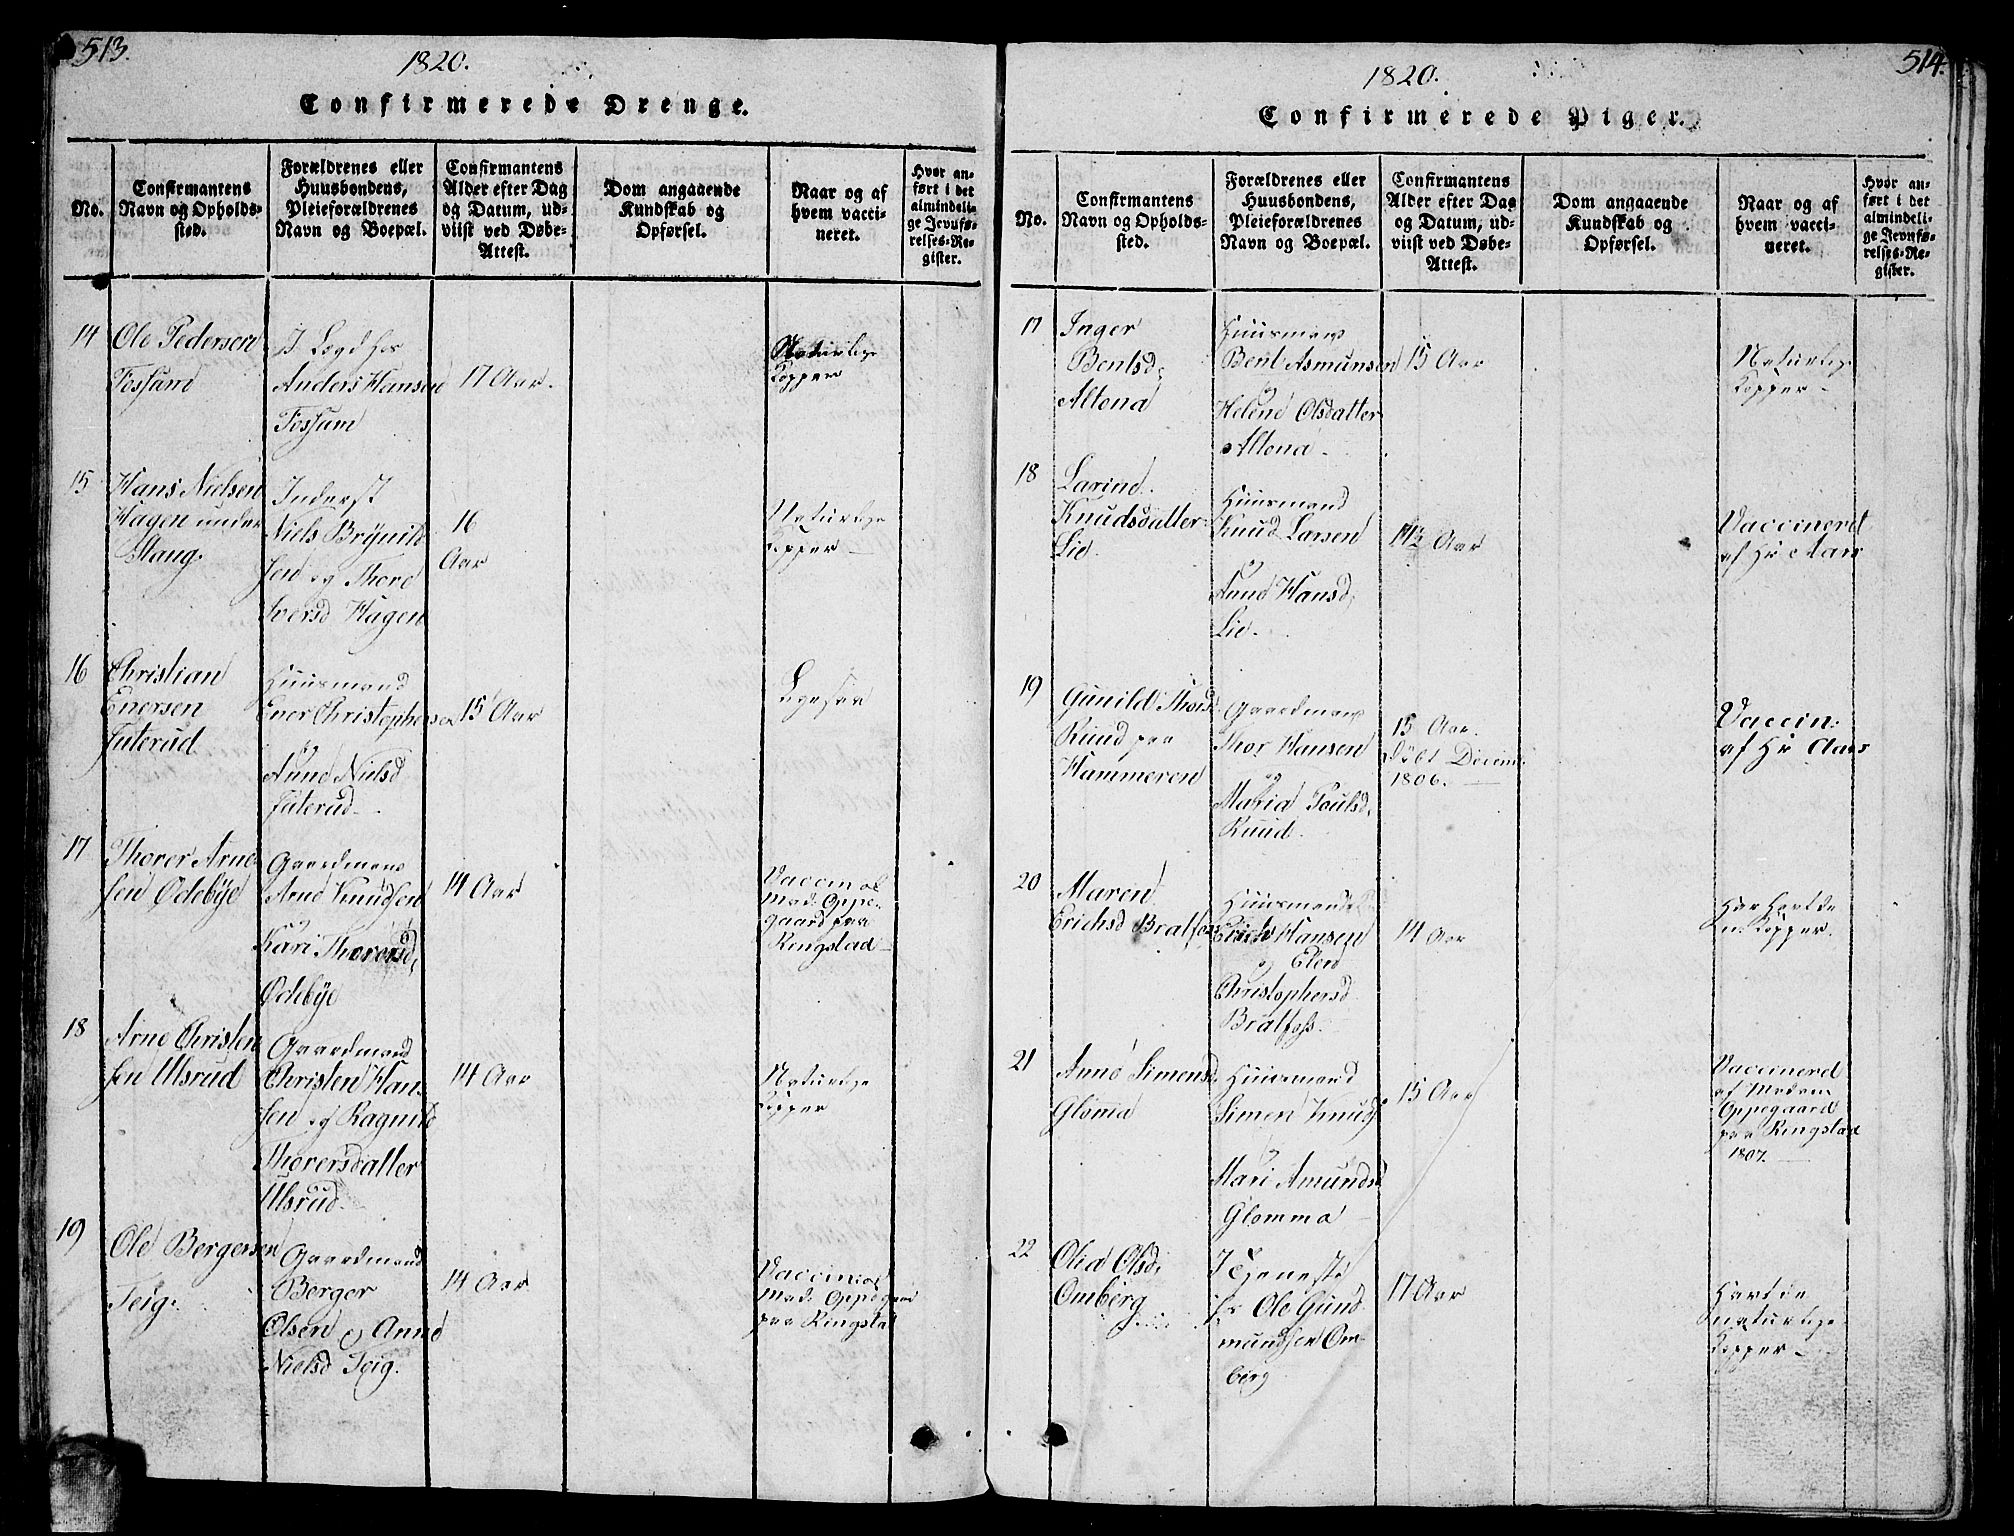 513.
1820.
Confirmerede Drenge.
No.
Confirmantens
Navn og Opholds-
sted.
Forældrenes eller
Huusbondens,
Pleieforældrenes
Navn og Boepæl.
Confirmantens
Alder efter Dag
og Datum, ud-
viist ved Døbe-
Attest.
Dom angaaende
Kundskab og
Opførsel.
Naar og af
hvem vacci-
neret.
Hvor an-
ført i det
almindeli-
ge Jevnfø-
relses-Re-
gister.
14
Ole Pedersen
Fossum
I Lægd hos
Anders Hansen
Fossum
17 Aar.
Naturlige
Kopper
15
Hans Nielsen
Hagen under
Stang.
Inderst
Niels Brynild
sen og Thore
Iversd Hagen
16
Aar
Naturlige
Kopper
16
Christian
Enersen
Juterud.
Huusmand
Ener Christophersen
og
Anne Nielsd
Juterud.
15 Aar
17
Thorer Arne
sen Ødebye
Gaardmand
Arne Knudsen
og
Kari Thorersd,
Ødebye
14 Aar
Vaccin af
Mad: Oppe-
gaard paa
Ringstad
18
Arne Christen
sen Ulsrud
Gaardmand
Christen Han-
sen og Ragnild
Thorersdatter
Ulsrud.
14 Aar
Naturlige
Kopper
19
Ole Bergersen
Teig.
Gaardmand
Berger
Olsen og Anne
Nielsd Teig.
14 Aar
Vaccin af
Mad: Oppegaard
paa Ringstad
514.
1820.
Confirmerede Piger.
No.
Confirmantens
Navn og Opholds-
sted.
Forældrenes eller
Huusbondens,
Pleieforældrenes
Navn og Boepæl.
Confirmantens
Alder efter Dag
og Datum, ud-
viist ved Døbe-
Attest.
Dom angaaende
Kundskab og
Opførsel.
Naar og af
hvem vacci-
neret.
Hvor an-
ført i det
almindeli-
ge Jevnfø-
relses-Re-
gister.
17
Inger
Bentsd,
Altona
Huusmand
Bent Asmunsen
og
Helene Olsdatter
Altona.
15 Aar
Naturlige
Kopper
18
Larine
Knudsdatter
Lie.
Huusmand
Knud Larsen
og
Anne Hansd,
Lie.
14½ Aar
Vaccineret
af Hr Aars
19
Gunild Thorsd
Ruud paa
Hammeren
Gaardmand
Thor Hansen
og
Maria Poulsd,
Ruud.
15 Aar.
Døbt Decem
1806.
Vaccin:
af Hr Aars
20
Maren
Erichsd Bratfoss
Huusmand
Erich Hansen
og Elen
Christophersd
Bratfoss.
14 Aar
Har havt de
n. Kopper.
21
Anne Simensd,
Glomma
Huusmand
Simen Knuds
og
Mari Amundsd
Glomma
15 Aar
Vaccinerd
af Madam
Oppegaard
paa Ringstad
1807.
22
Olia Olsd,
Omberg
I Tjeneste
hs Ole Gund
mundsen Om-
berg
17 Aar
Havt de
naturlige
Kopper